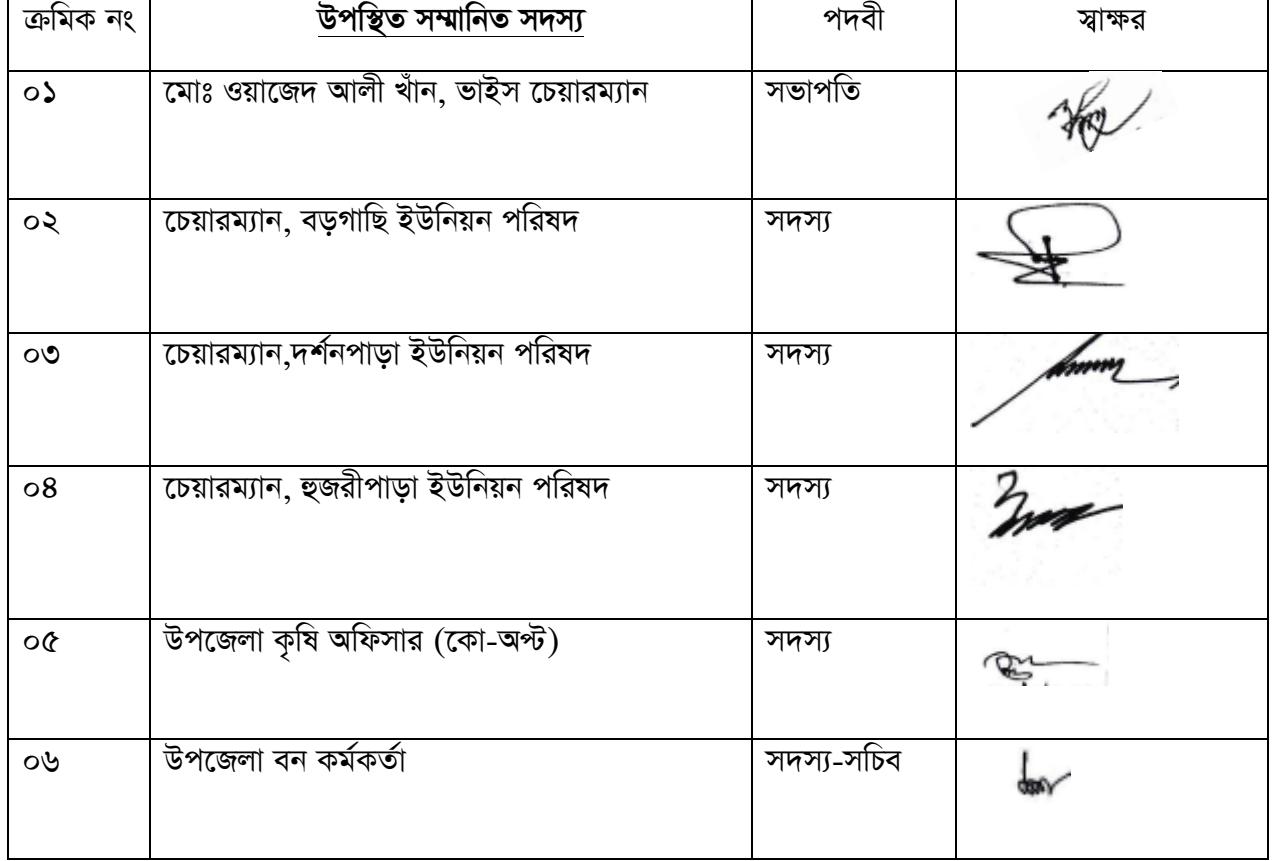 ক্রমিক নং উপস্থিত সম্মানিত সদস্য পদবী স্বাক্ষর
০১ মোঃ ওয়াজেদ আলী খাঁন, ভাইস চেয়ারম্যান সভাপতি
০২ চেয়ারম্যান, বড়গাছি ইউনিয়ন পরিষদ সদস্য
০৩ চেয়ারম্যান,দর্শনপাড়া ইউনিয়ন পরিষদ সদস্য
০৪ চেয়ারম্যান, হুজরীপাড়া ইউনিয়ন পরিষদ সদস্য
০৫ উপজেলা কৃষি অফিসার (কো-অপ্ট) সদস্য
০৬ উপজেলা বন কর্মকর্তা সদস্য-সচিব